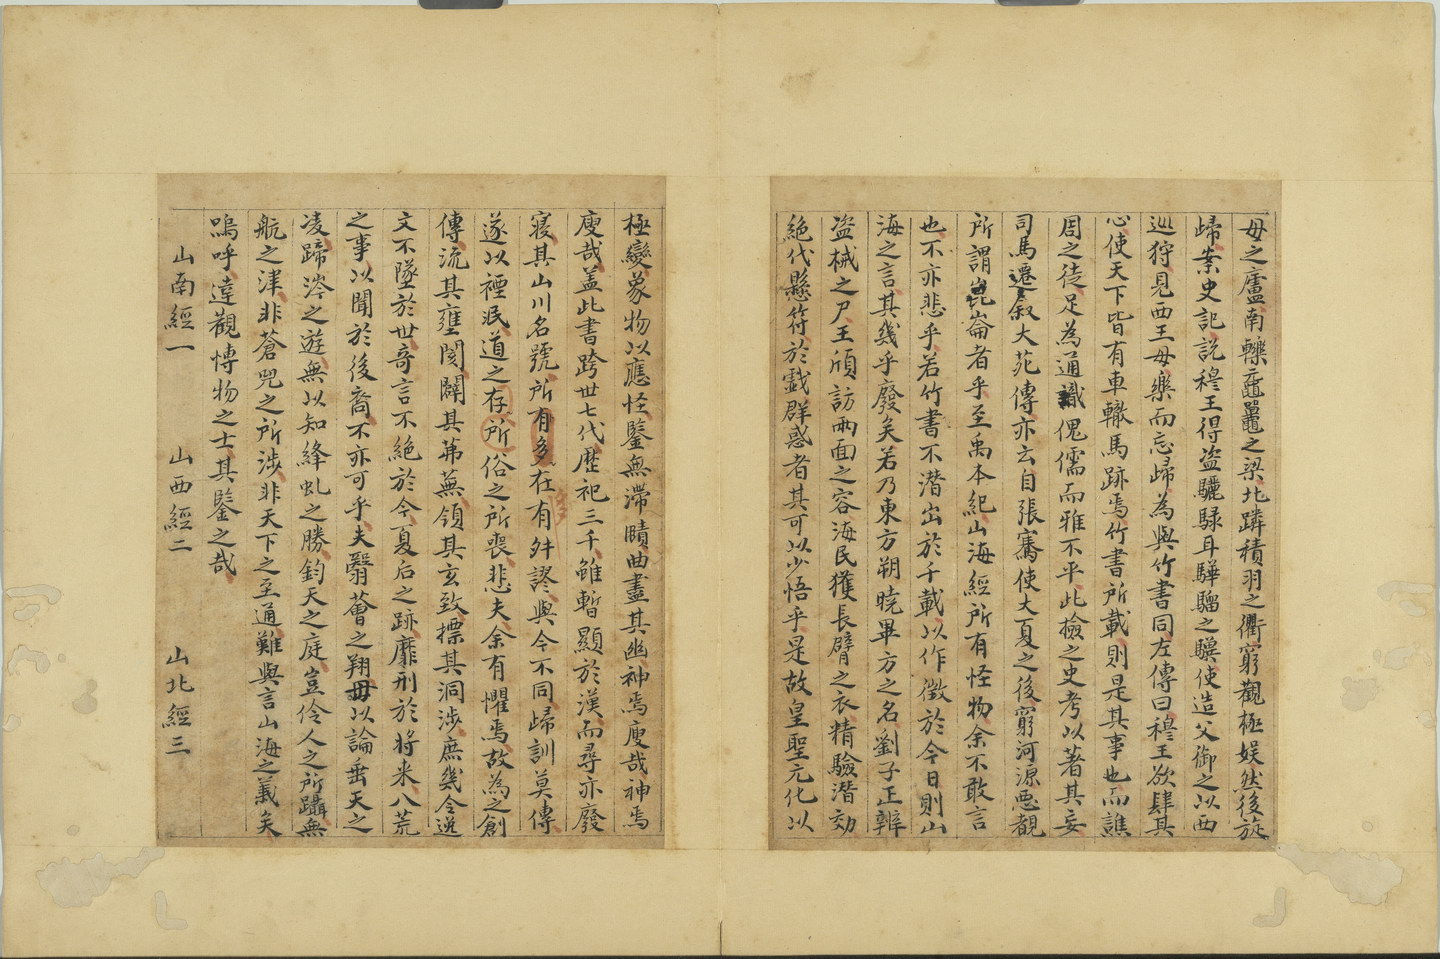 母之廬南轢黿鼉之梁北躋積羽之衢窮觀極娛然後旋
歸案史記說穆王得盜驪騄耳驊騮之驥使造父御之以西
巡狩見西王母樂而忘歸為與竹書同左傳曰穆王欲肆其
心使天下皆有車轍馬跡焉竹書所載則是其事也而譙
周之徒足為通識傀儒而雅不平此檢之史考以著其妄
司馬遷叙大菀傳亦云自張騫使大夏之後窮河源惡覩
所謂崑崙者乎至禹本紀山海經所有怪物余不敢言
也不亦悲乎若竹書不潛出於千載以作徵於今日則山
海之言其幾乎廢矣若乃東方朔曉畢方之名劉子正辨
盜械之尸王頎訪兩面之容海民獲長臂之衣精驗潛効
絕代懸符於戲群惑者其可以少悟乎是故皇聖元化以
極變象物以應怪鑒無滯賾曲盡其幽神焉廋哉神焉
廋哉盖此書跨世七代歷祀三千雖暫顯於漢而尋亦廢
寢其山川名號所有多在有舛謬與今不同歸訓莫傳
遂以禋泯道之存所俗之所喪悲夫余有懼焉故為之創
傳流其壅閡闢其茀蕪領其玄致摽其洞涉庶幾令逸
文不墜於世奇言不絕於今夏后之跡靡刑於將来八荒
之事以聞於後裔不亦可乎夫翳薈之翔毋以論垂天之
凌蹄涔之遊無以知絳虬之勝鈞天之庭豈伶人之所躡無
航之津非蒼兕之所涉非天下之至通難與言山海之義矣
嗚呼達觀博物之士其鑒之哉
山南經一 山西經二 山北經三